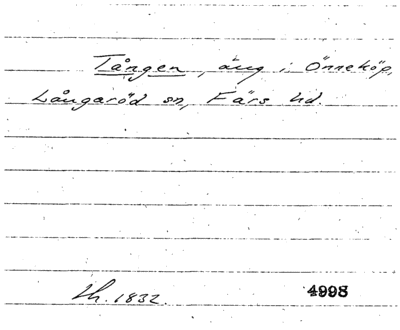 Tången, äng i Önneköp,
Långaröd sn, Färs hd.
Lh. 1832. 4998